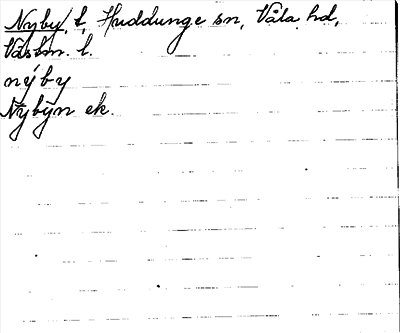 Nyby, t, Huddunge sn, Våla hd,
Västm. l.
nýby
Nýbýn ek.